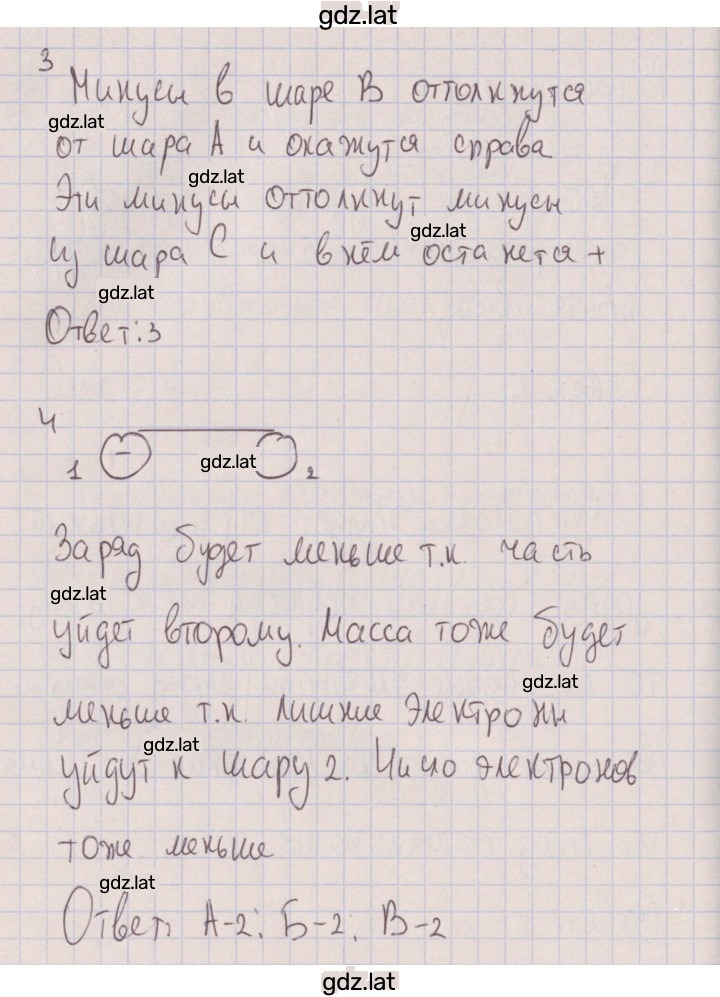 gdz.lat
3
Минусы в шаре В оттолкнутся
gdz.lat
от шара А и окажутся справа
gdz.lat
Эти минусы оттолкнут минусы
gdz.lat
из шара С и в нём останется +
gdz.lat
Ответ: 3
4
1 − gdz.lat 2
Заряд будет меньше т.к. часть
gdz.lat
уйдет второму. Масса тоже будет
gdz.lat
меньше т.к. лишние электроны
gdz.lat
уйдут к шару 2. Число электронов
тоже меньше
gdz.lat
Ответ: А-2; Б-2; В-2
gdz.lat